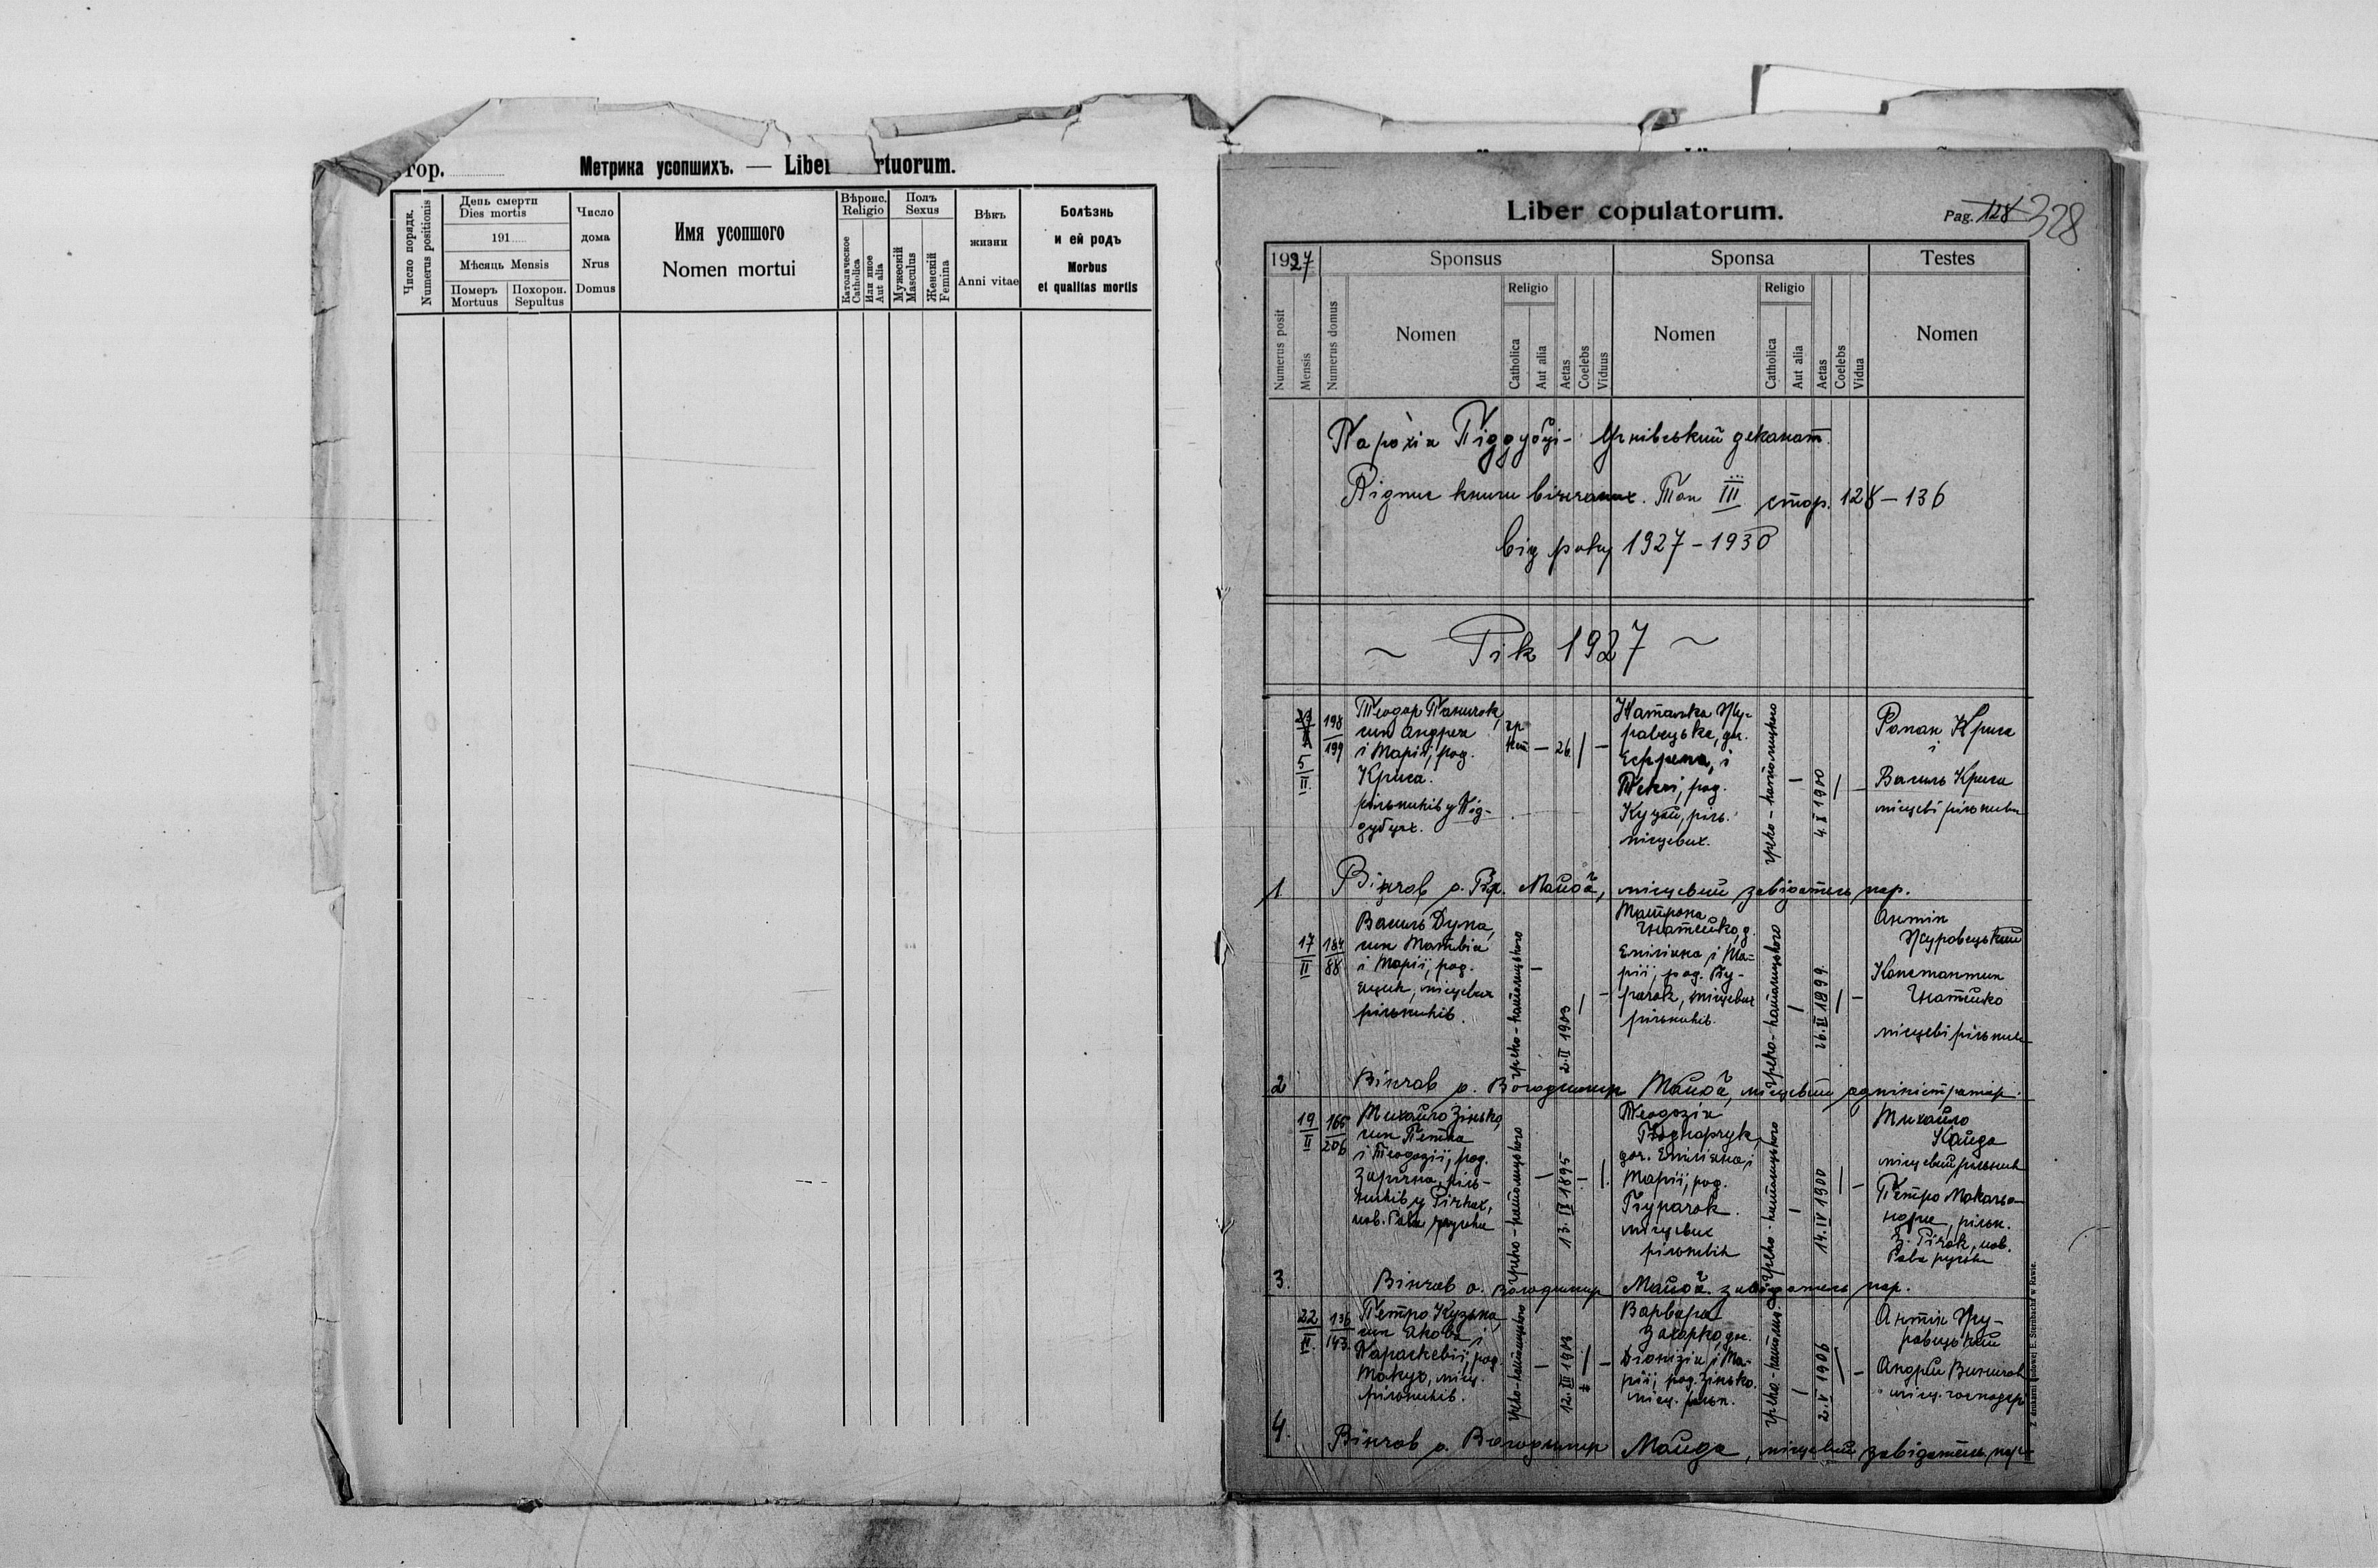 Стор.
Метрика усопшихъ. — Liber mortuorum.
Число порядк.
Numerus positionis
День смерти
Dies mortis
191
Мѣсяць Mensis
Померъ
Mortuus
Похорон.
Sepultus
Число
дома
Nrus
Domus
Имя усопшого
Nomen mortui
Вѣроис.
Religio
Католическое
Catholica
Или иное
Aut alia
Полъ
Sexus
Мужескій
Masculus
Женскій
Femina
Вѣкъ
жизни
Anni vitae
Болѣзнь
и ей родъ
Morbus
et qualitas mortis
Liber copulatorum.
Pag. 128 328
1927
Sponsus
Sponsa
Testes
Numerus posit
Mensis
Numerus domus
Nomen
Religio
Catholica
Aut alia
Aetas
Coelebs
Viduus
Nomen
Religio
Catholica
Aut alia
Aetas
Coelebs
Vidua
Nomen
Парохія Піддубці - Угнівський деканат.
Відпис книги вінчаних. Том III стор. 128 – 136
від року 1927 – 1930
~ Рік 1927 ~
5/II
198/199
Теодор
син Андрея
і Марії, род.
Криса.
рільників у Під-
дубцях.
гр
кат — 26 / —
Катанка Жу-
равецька, дч.
і
Теклі, род.
ріль.
місцевих.
греко-католицького
4. X 1900
Роман Криса
і
Василь Криса
місцеві рільники
1
Вінчав о. Майба, місцевий завідатель пар.
17/II
184/88
Василь Дупа,
син Матвія
і Марії, род.
місцевих
рільників.
греко-католицького
2. II 1903
Матрона
Гнатейко, д.
Еміліяна і Ма-
рії, род. Гу-
місцевих
рільників.
греко-католицького
26. II 1899.
Антін
Журавецький
Константин
Гнатейко
місцеві рільники
2
Вінчав о. Володимир місцевий адміністратор.
19/II
165/206
Михайло Зінько,
син Петра
і Теодозії, род.
ріль-
ників у Річках,
пов. Рава руська
греко-католицького
13. IX 1895
Теодозія
доч. Еміліяна і
Марії, род.
місцевих
рільників
греко-католицького
14. IV 1900
Михайло
Кайда
місцевий рільник
Петро
рільн.
з Річок, пов.
Рава руська
3.
Вінчав о. Володимир завідатель пар.
22/II.
136/143.
Петро Кузьма,
син Якова і
Параскевії, род.
місц.
рільників.
греко-католицького
12. III 1903
Варвара
Захарко, дч.
Діонізія і Ма-
рії, род. Зінько.
місц. рільн.
греко-католиц.
2. V 1906
Антін Жу-
равецький
Андрій
місц. господарі
4.
Вінчав о. Володимир місцевий завідатель пар.
Z drukarni ludowej E. Sternbacha w Rawie.